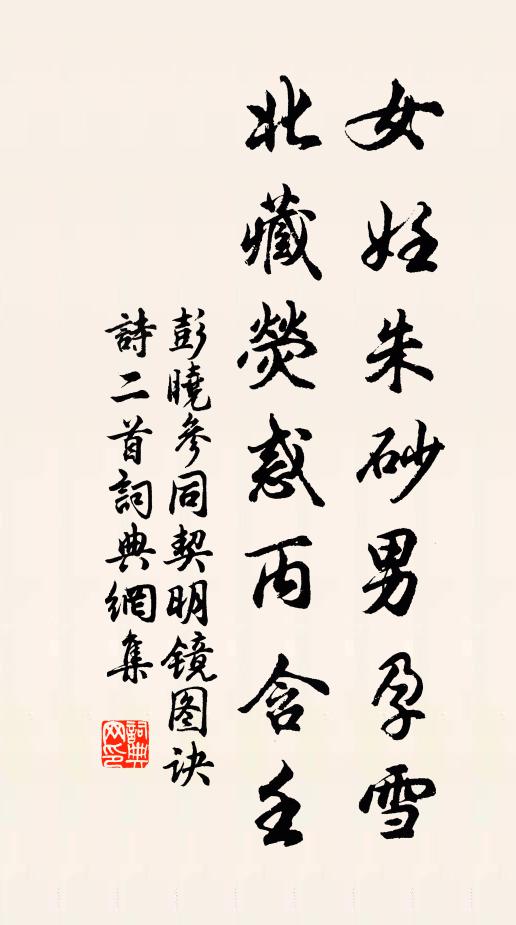 女妊朱砂男孕雪
北藏熒惑丙含壬
彭曉參同契明镜图诀
詩二首詞典網集
詞典
网印